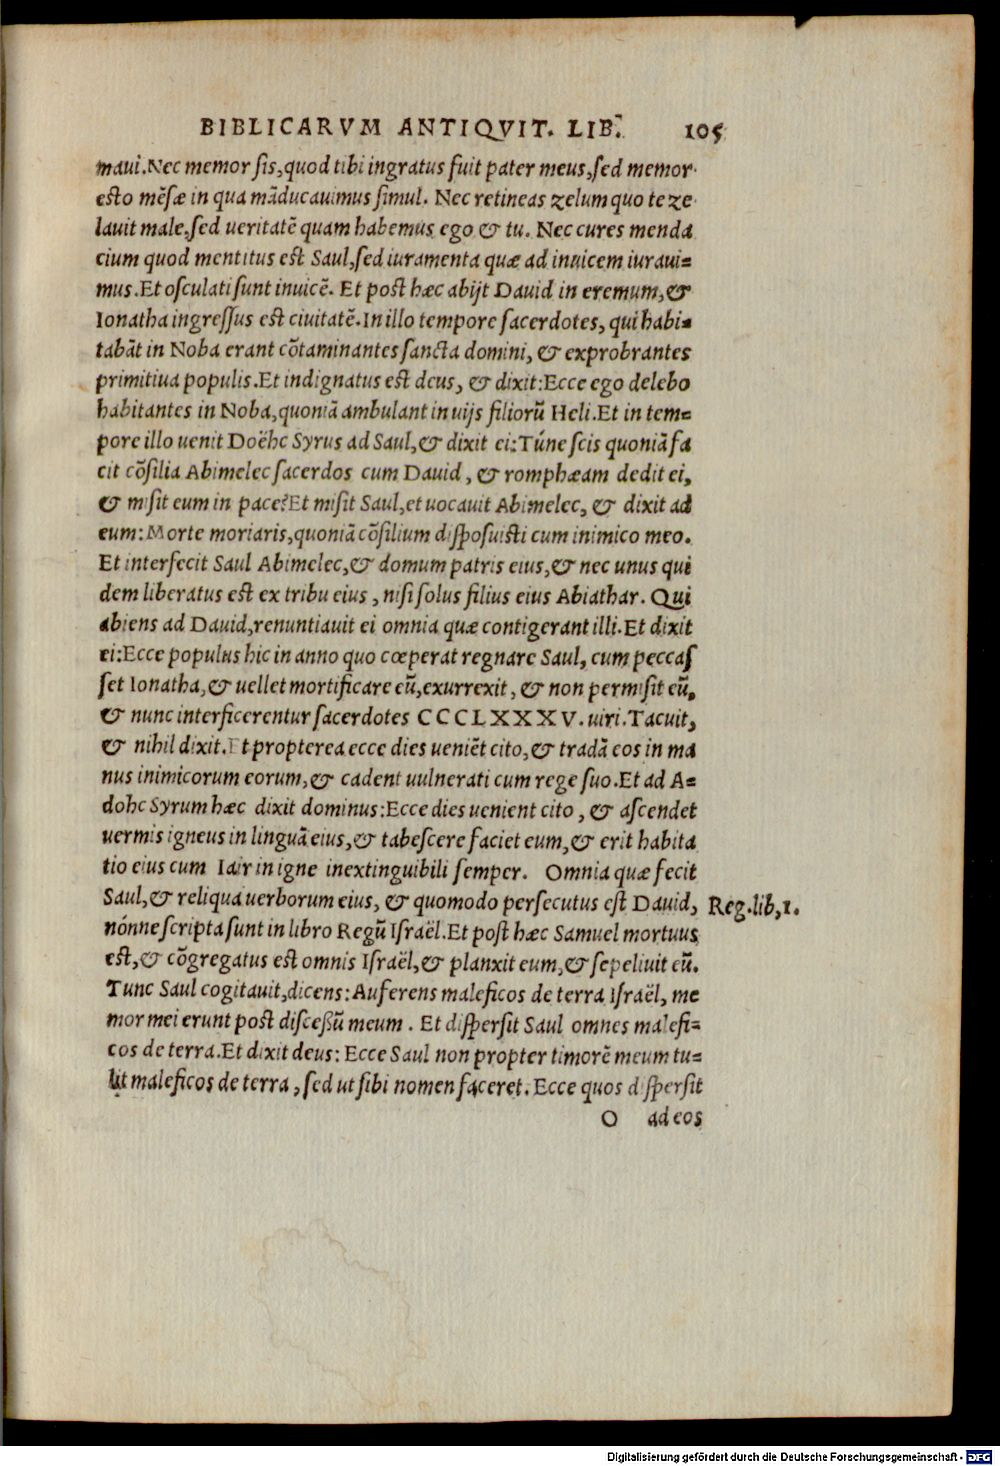 BIBLICARVM ANTIQVIT. LIB. 105
maui. Nec memor sis, quod tibi ingratus fuit pater meus, sed memor
esto mēsæ in qua māducauimus simul. Nec retineas zelum quo te ze
lauit male, sed ueritatē quam habemus ego & tu. Nec cures menda
cium quod mentitus est Saul, sed iuramenta quæ ad inuicem iuraui=
mus. Et osculati sunt inuicē. Et post hæc abijt Dauid in eremum, &
Ionatha ingressus est ciuitatē. In illo tempore sacerdotes, qui habi=
tabāt in Noba erant cōtaminantes sancta domini, & exprobrantes
primitiua populis. Et indignatus est deus, & dixit: Ecce ego delebo
habitantes in Noba, quoniā ambulant in uijs filiorū Heli. Et in tem=
pore illo uenit Doëhc Syrus ad Saul, & dixit ei: Túne scis quoniā fa
cit cōsilia Abimelec sacerdos cum Dauid, & romphæam dedit ei,
& misit eum in pace? Et misit Saul, et uocauit Abimelec, & dixit ad
eum: Morte moriaris, quoniā cōsilium disposuisti cum inimico meo.
Et interfecit Saul Abimelec, & domum patris eius, & nec unus qui
dem liberatus est ex tribu eius, nisi solus filius eius Abiathar. Qui
abiens ad Dauid, renuntiauit ei omnia quæ contigerant illi. Et dixit
ei: Ecce populus hic in anno quo cœperat regnare Saul, cum peccas
set Ionatha, & uellet mortificare eū, exurrexit, & non permisit eū,
& nunc interficerentur sacerdotes CCCLXXXV. uiri. Tacuit,
& nihil dixit. Et propterea ecce dies ueniēt cito, & tradā eos in ma
nus inimicorum eorum, & cadent uulnerati cum rege suo. Et ad A=
dohc Syrum hæc dixit dominus: Ecce dies uenient cito, & ascendet
uermis igneus in linguā eius, & tabescere faciet eum, & erit habita
tio eius cum Iair in igne inextinguibili semper. Omnia quæ fecit
Saul, & reliqua uerborum eius, & quomodo persecutus est Dauid, Reg. lib, 1.
nónne scripta sunt in libro Regū Israël. Et post hæc Samuel mortuus
est, & cōgregatus est omnis Israël, & planxit eum, & sepeliuit eū.
Tunc Saul cogitauit, dicens: Auferens maleficos de terra Israël, me
mor mei erunt post discessū meum. Et dispersit Saul omnes malefi=
cos de terra. Et dixit deus: Ecce Saul non propter timorē meum tu=
lit maleficos de terra, sed ut sibi nomen faceret. Ecce quos dispersit
O ad eos
Digitalisierung gefördert durch die Deutsche Forschungsgemeinschaft - DFG